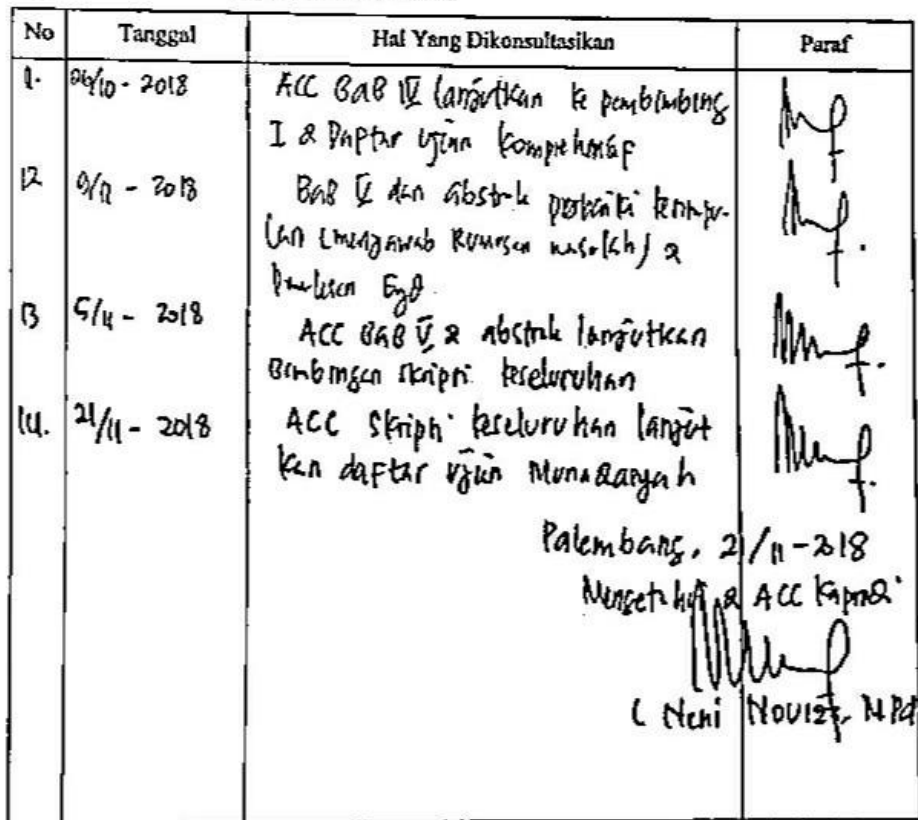 No Tanggal Hal Yang Dikonsultasikan Paraf
11. 06/10 - 2018 ACC BAB IV lanjutkan ke pembimbing
I & Daftar ujian komprehensif
12 - 2018 BAB V dan abstrak perbaiki kesimpu-
lan (menjawab Rumusan masalah) &
Penulisan EyD.
13 5/11 - 2018 ACC BAB V, & abstrak lanjutkan
Bimbingan skripsi keseluruhan
14. 21/11 - 2018 ACC Skripsi keseluruhan lanjut
kan daftar ujian Munaqasyah
Palembang, 21/11 - 2018
Mengetahui & ACC Kaprodi
( Neni Noviza, M Pd